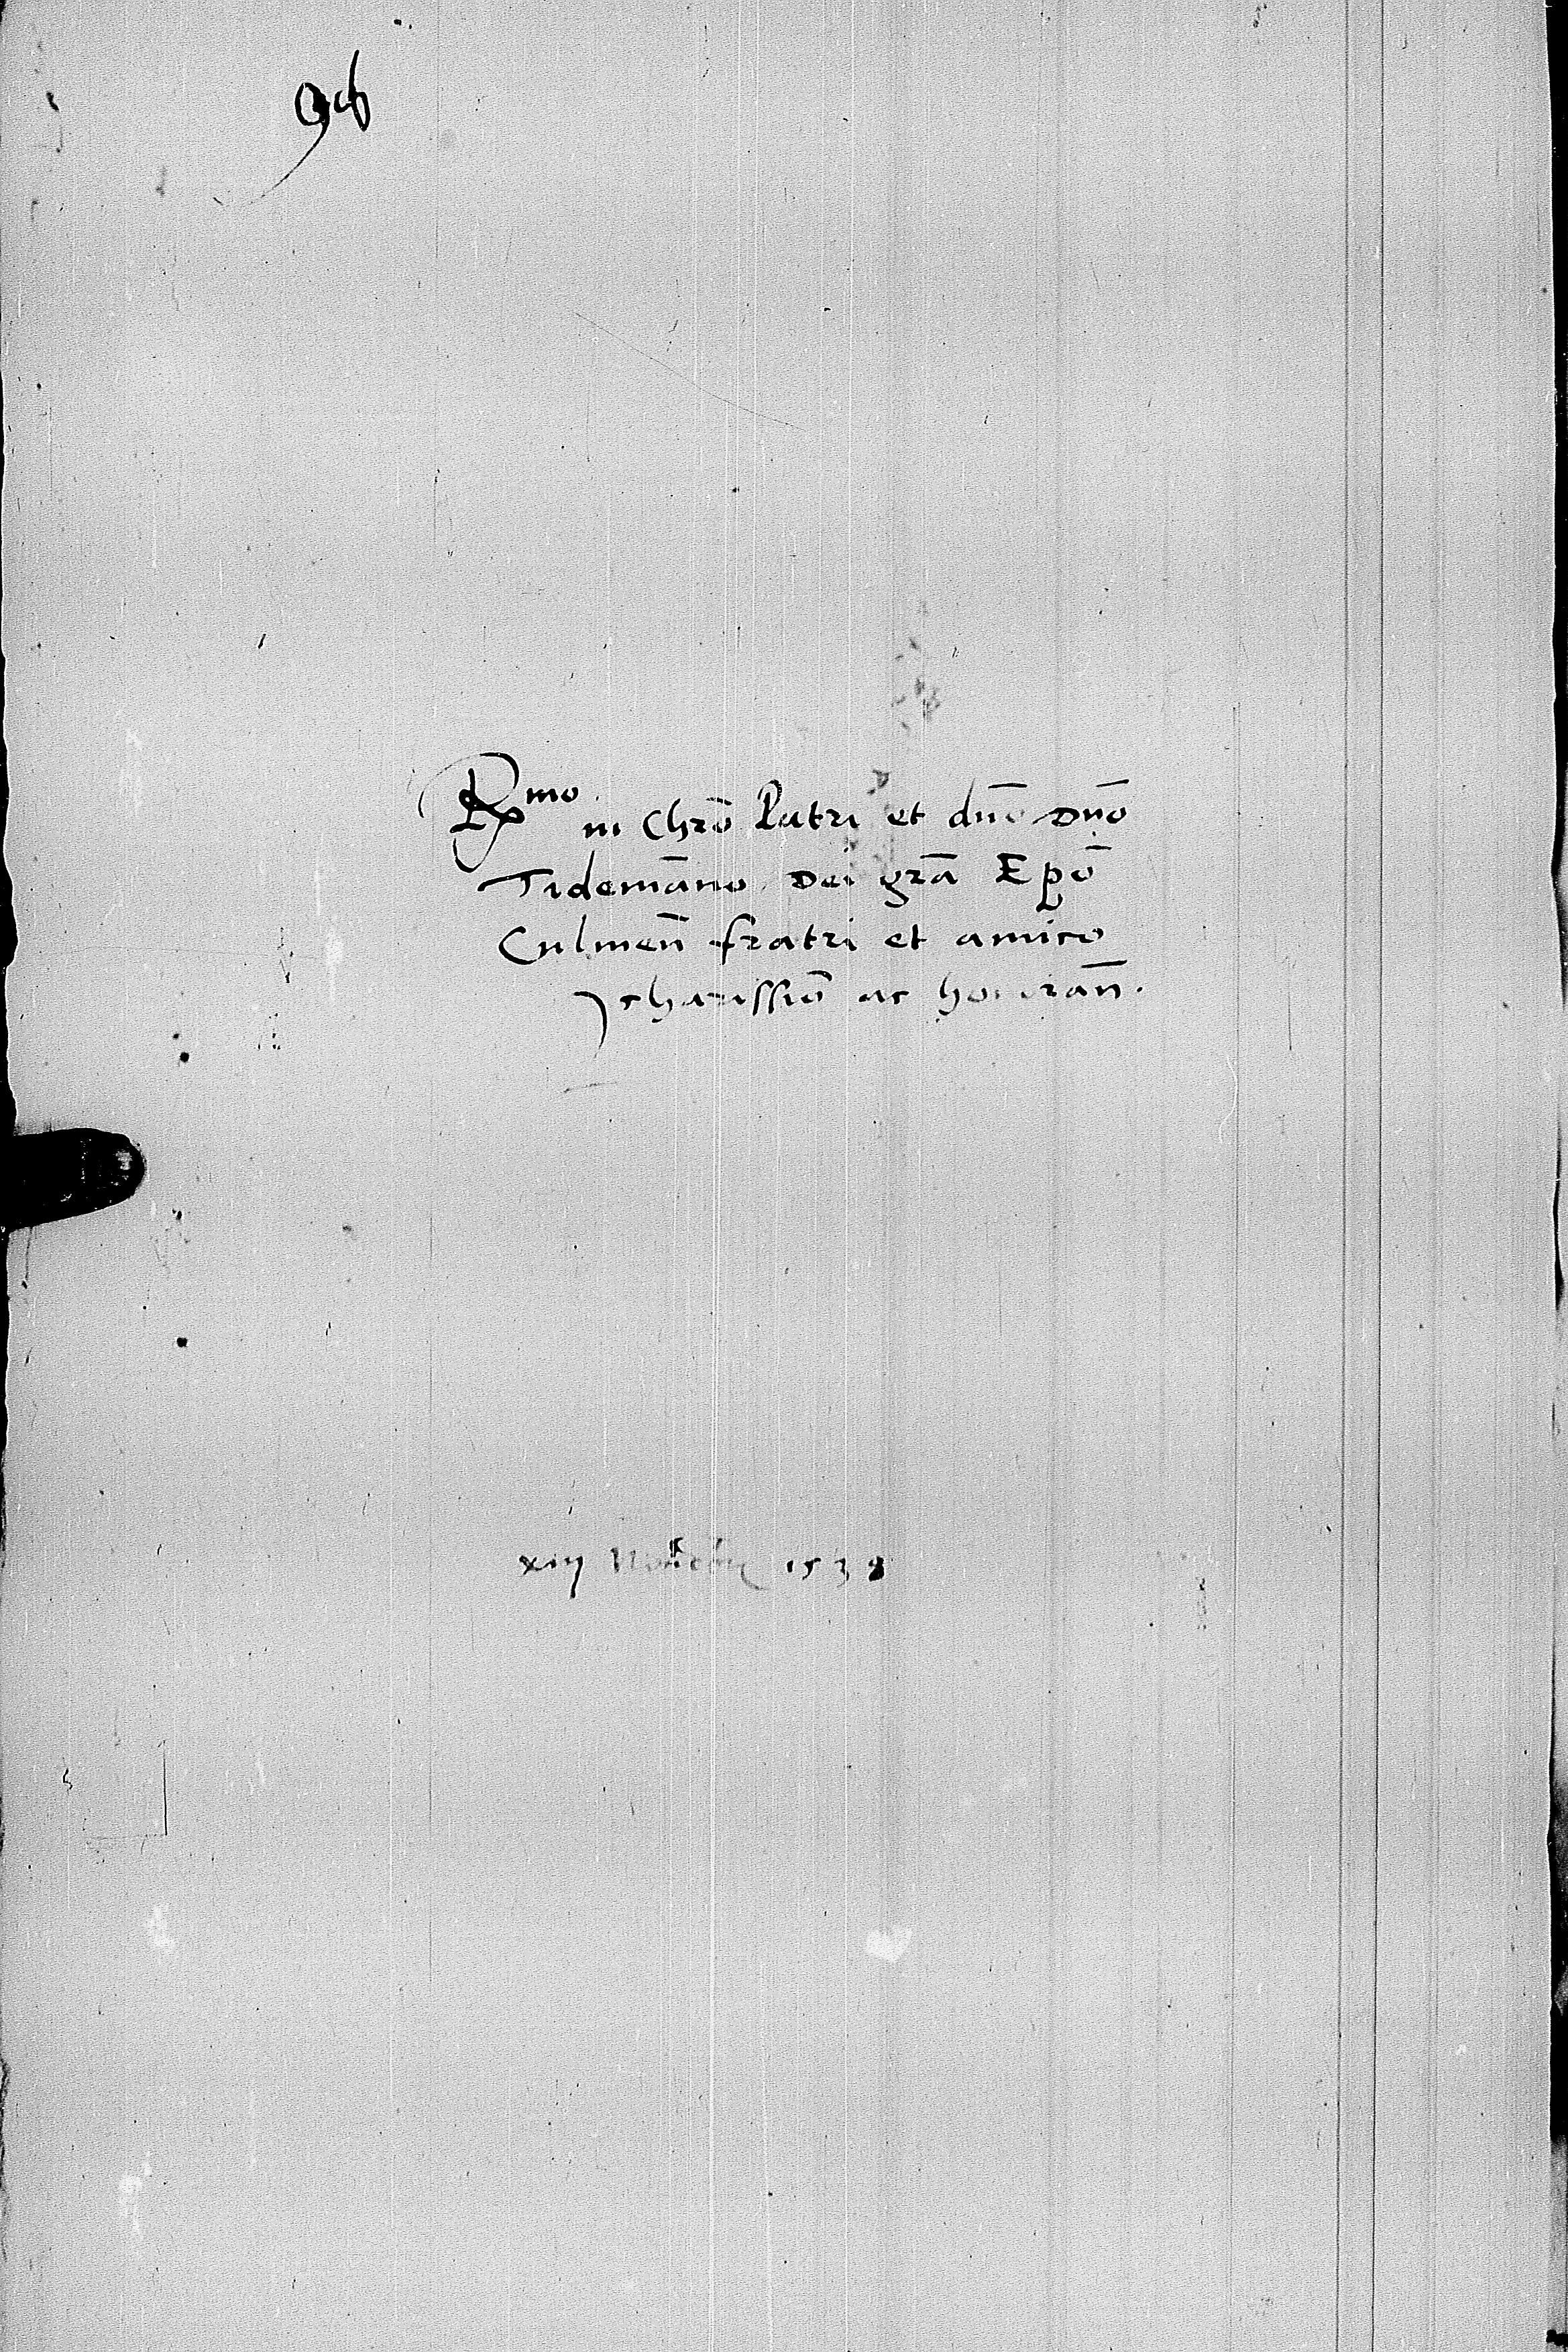 96
R^mo in Chr̄o Patri et dn̄o Dn̄o
Tidemāno Dei gr̄a Ep̄o
Culmen̄ fratri et amico
charissīo ac honoran̄.
xiij 1538